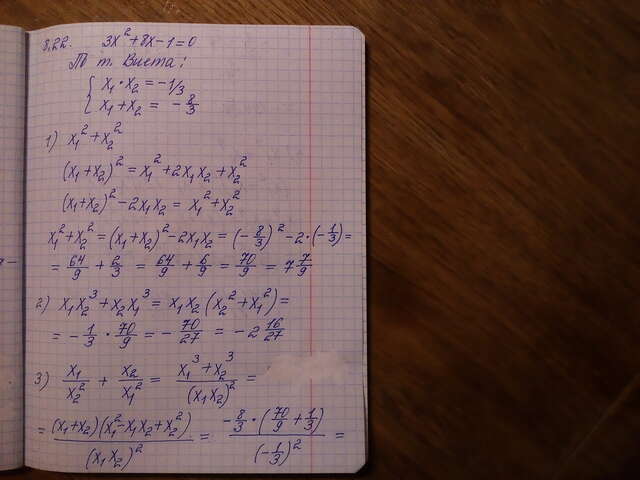 8.22. 3x² + 8x - 1 = 0
По т. Виета:
{ x₁ · x₂ = -1/3
{ x₁ + x₂ = -8/3
1) x₁² + x₂²
(x₁ + x₂)² = x₁² + 2x₁x₂ + x₂²
(x₁ + x₂)² - 2x₁x₂ = x₁² + x₂²
x₁² + x₂² = (x₁ + x₂)² - 2x₁x₂ = (-8/3)² - 2·(-1/3) =
= 64/9 + 2/3 = 64/9 + 6/9 = 70/9 = 7 7/9
2) x₁x₂³ + x₂x₁³ = x₁x₂(x₂² + x₁²) =
= -1/3 · 70/9 = -70/27 = -2 16/27
3) x₁/x₂² + x₂/x₁² = (x₁³ + x₂³)/(x₁x₂)² =
= (x₁ + x₂)(x₁² - x₁x₂ + x₂²)/(x₁x₂)² = -8/3 · (70/9 + 1/3)/(-1/3)² =